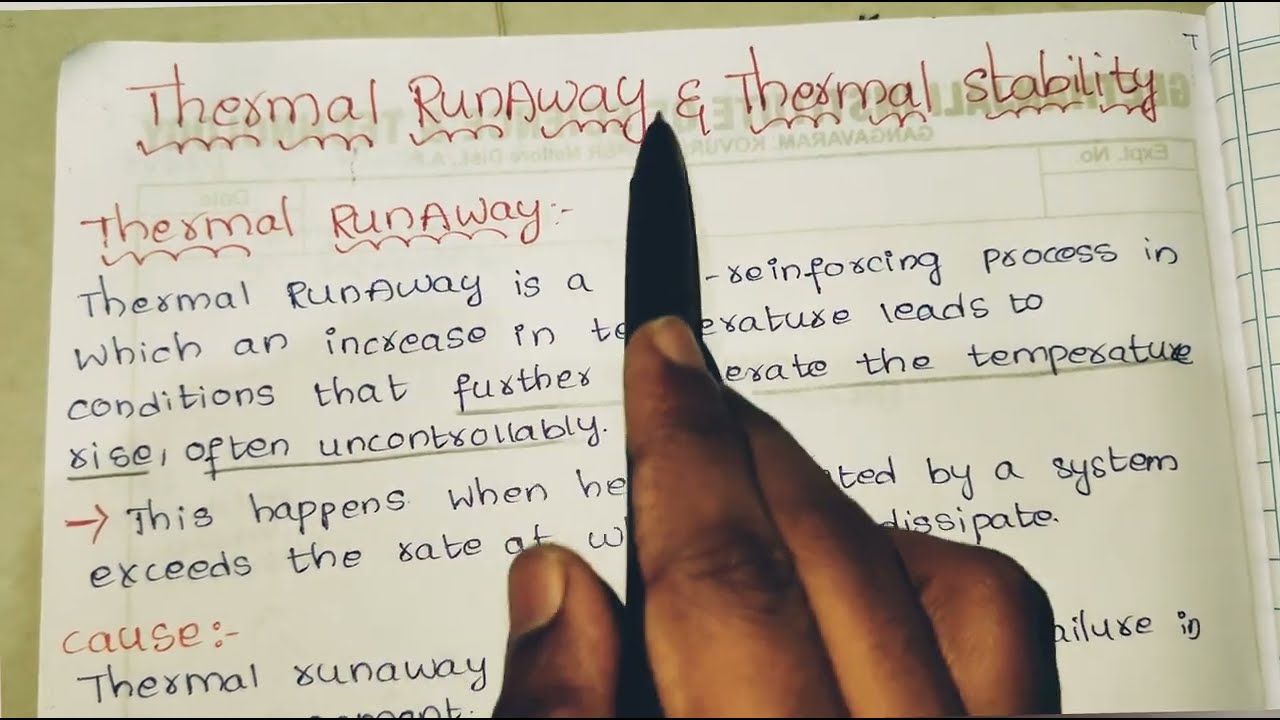 Thermal RunAway & Thermal stability
Thermal RunAway:-
Thermal RunAway is a -reinforcing process in
which an increase in te erature leads to
conditions that further erate the temperature
rise, often uncontrollably.
→ This happens when he ted by a system
exceeds the rate at w dissipate.
cause:-
Thermal runaway ailure in
T
GANGAVARAM, KOVUR
Expt. No.
Date